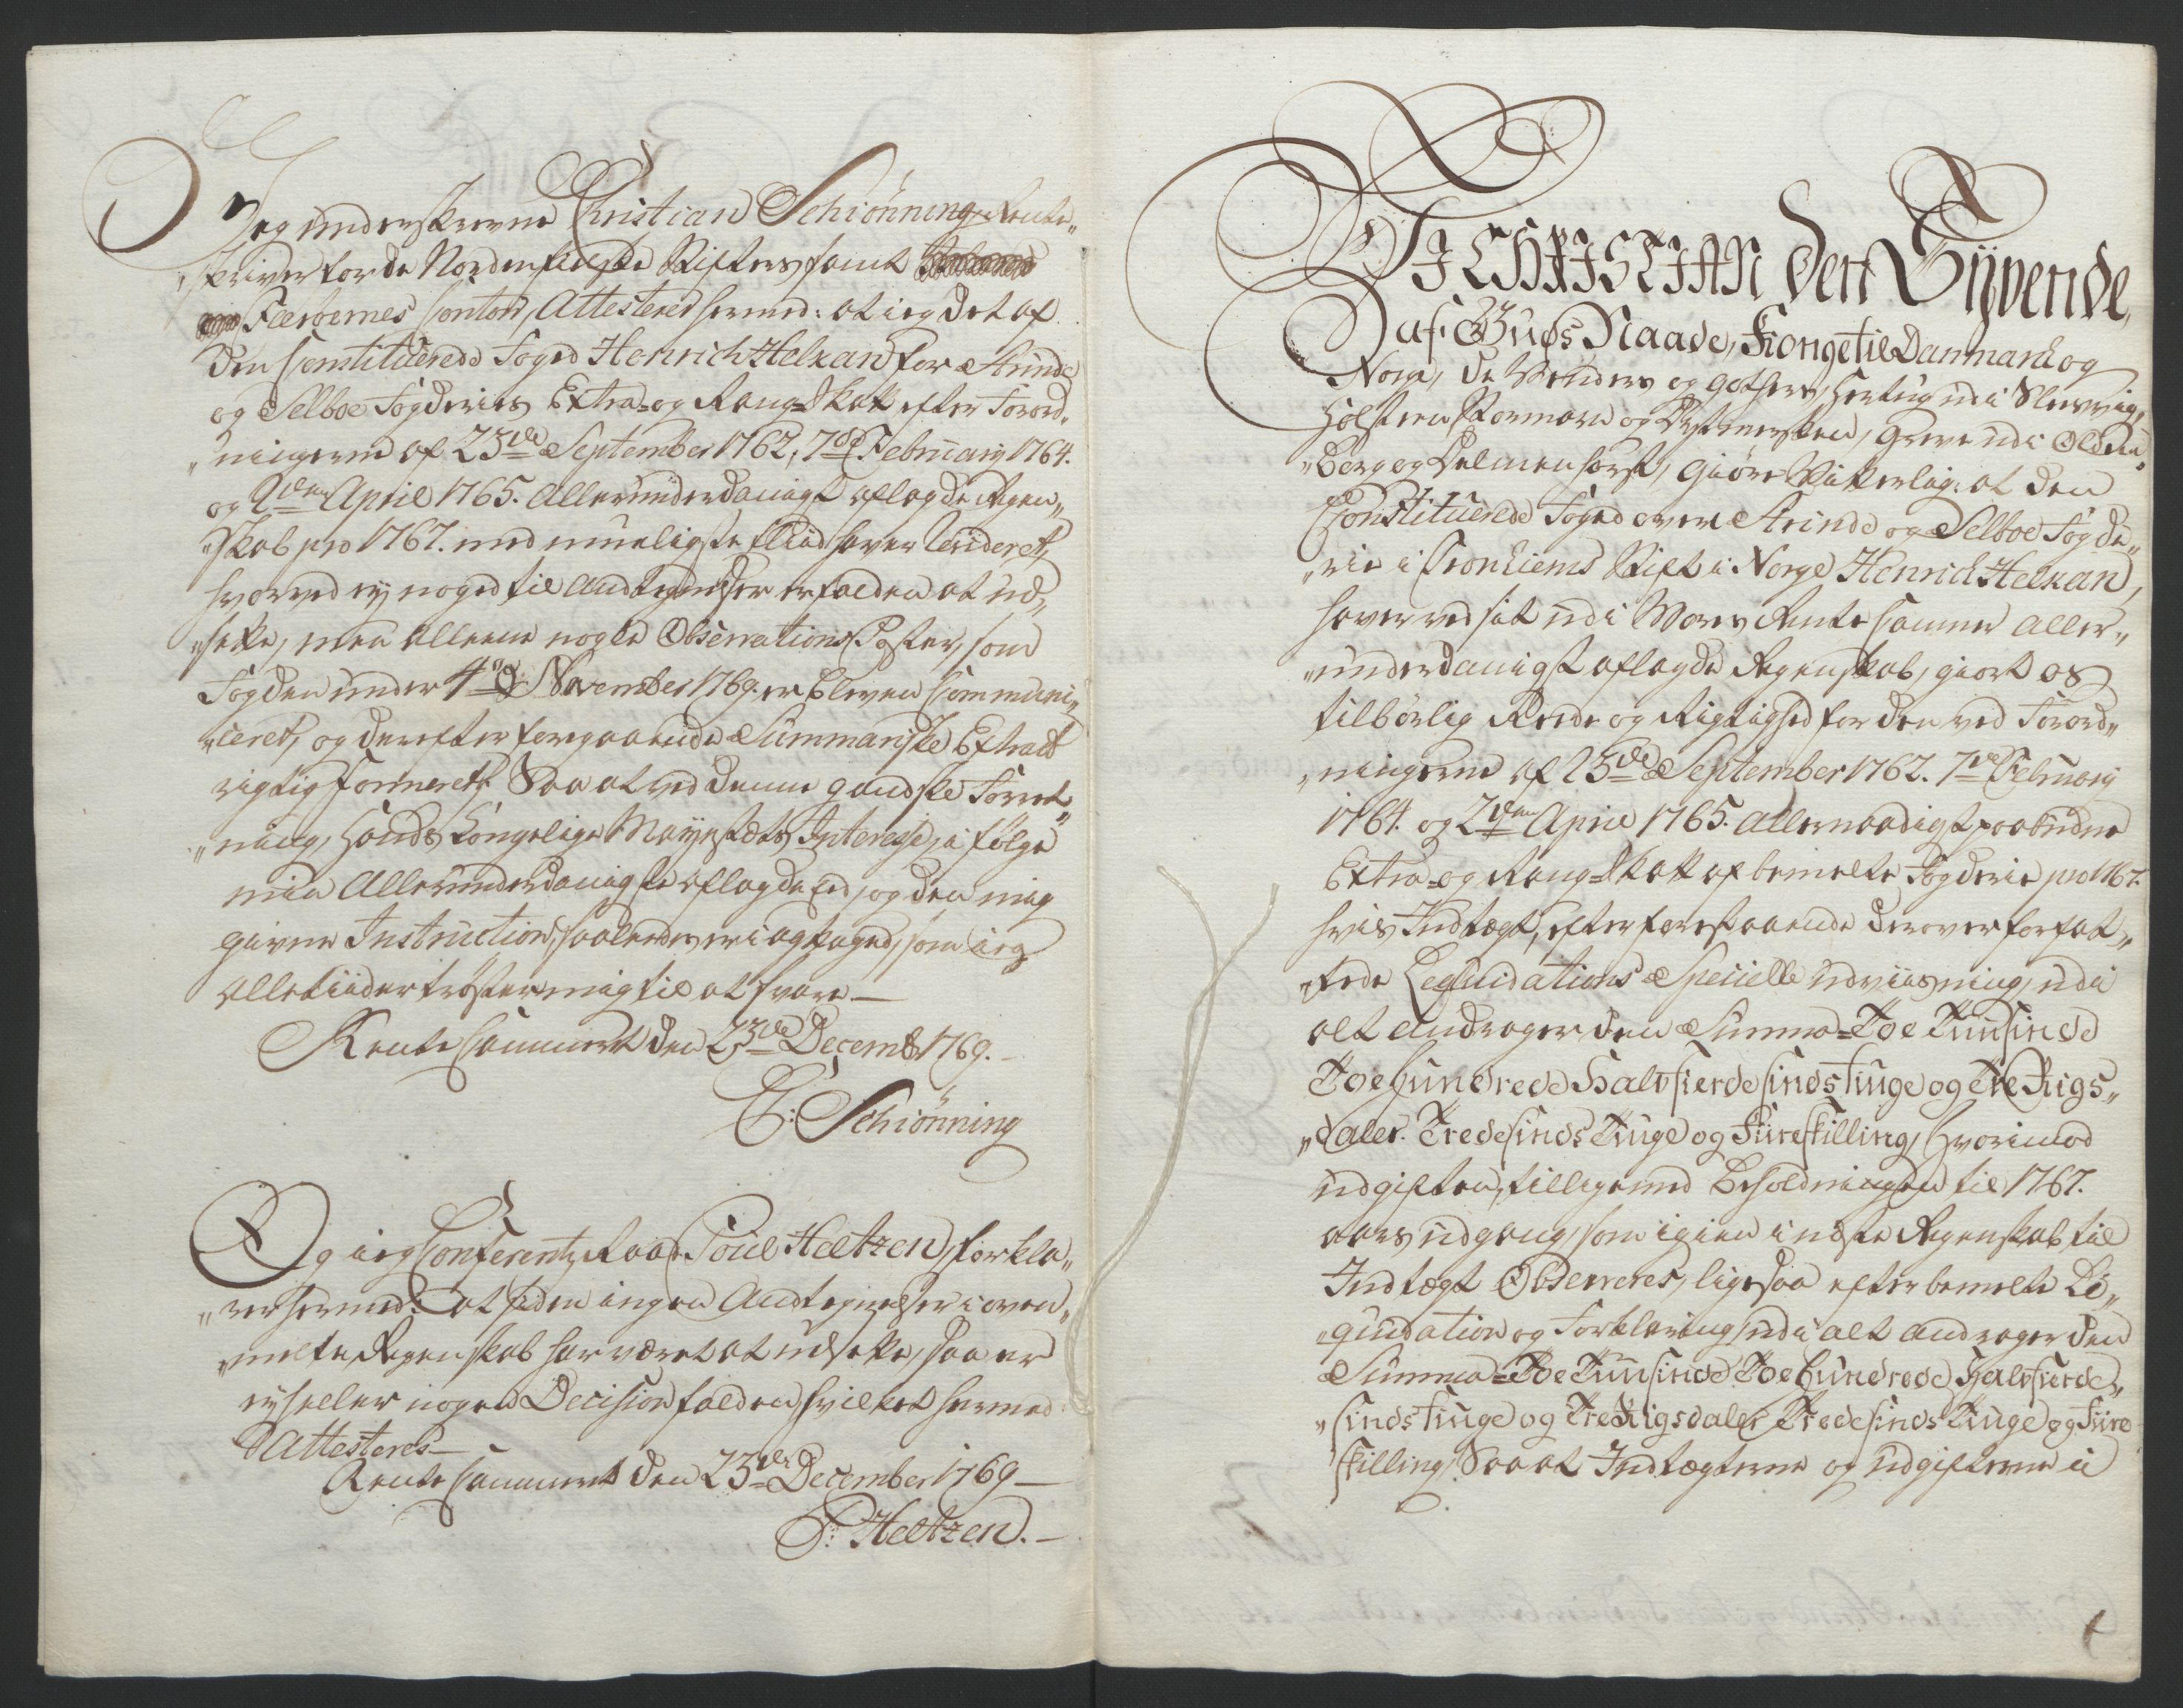 Jeg underskrevne Christian Schiönning, Rente„
„skriver for de Nordenfieldske Stifters samt
Færøernes Contoir, Attesterer hermed: at ieg det af
den Constituerede Foged Henrich Helkan for Strinde
og Selboe Fogderies Extra- og Rang-Skatt efter Forord„
„ningerne af 23de September 1762, 7de Februarij 1764.
og 2den April 1765. allerunderdanigst aflagde Regen„
„skab pro 1767. med mueligste Fliid haver revideret,
hvorved ey noget til Andtegnelser er falden at ud„
„sette, men alleene nogle Observations Poster, som
Fogden under 4de November 1769. er bleven Communi„
„ceret, og derefter foregaaende Summariske Extract
rigtig formeret; Saa at ved denne gandske Forret„
„ning, Hands Kongelige Mayestæts Interesse, i følge
min Allerunderdanigste aflagde Eed, og den mig
givne Instruction, saaledes er iagttaged, som ieg
alletiider trøster mig til at svare —
Rente Cammeret den 23de Decemb: 1769. —
C: Schiönning
Og ieg Conferentz Raad Poul Heltzen, forkla„
„rer hermed: at siden ingen Andtegnelser i oven„
„meldte Regenskab har været at udsette, saa er
ey heller nogen Decision falden, hvilket hermed
Attesteres —
Rente Cammeret den 23de December 1769 —
P: Heltzen. —
VI CHRISTIAN den Syvende,
af Guds Naade, Konge til Danmark og
Norge, de Wenders og Gothers, Hertug udi Slesvig,
Holsteen, Stormarn og Dytmersken, Greve udi Olden„
„borg og Delmenhorst, Giøre Vitterlig: at den
Constituerede Foged over Strinde og Selboe Fogde„
„rie i Tronhiems Stift i Norge Henrich Helkan,
haver ved sit udi Vores Rente Cammer aller„
„underdanigst aflagde Regenskab, giort os
tilbørlig Reede og Rigtighed for den ved Forord„
„ningerne af 23de September 1762. 7de Februarij
1764. og 2den April 1765. allernaadigst paabudne
Extra- og Rang-Skatt af bemelte Fogderie pro 1767.
hvis Indtægt, efter forestaaende derover forfat„
„tede Liquidations Specielle udviisning, udi
alt andrager den Summa - Toe Tuusinde
Toe Hundrede Halvfierdesindstiuge og Tre Rigs„
„daler. Tredesindstiuge og Fiire skilling, hvorimod
udgiften, tilligemed Beholdningen til 1767.
aars udgang, som igien i neste Regenskab til
Indtægt Observeres, ligesaa efter bemelte Li„
„quidation og Forklaring, udi alt andrager den
Summa - Toe Tuusinde Toe Hundrede Halvfierde„
„sindstiuge og Tre Rigsdaler Tredesindstiuge og Fiire
skilling; Saa at Indtægterne og udgifterne ei